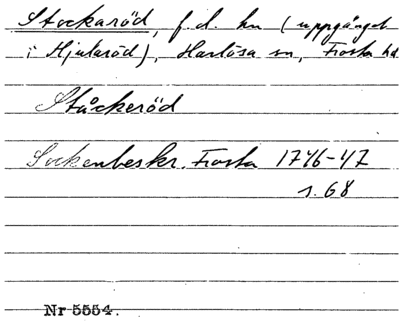 Stockaröd, f.d. hn (uppgånget
i Hjularöd), Harlösa sn, Frosta hd
Ståckeröd
Sockenbeskr. Frosta 1746-47
s. 68
Nr 5554.